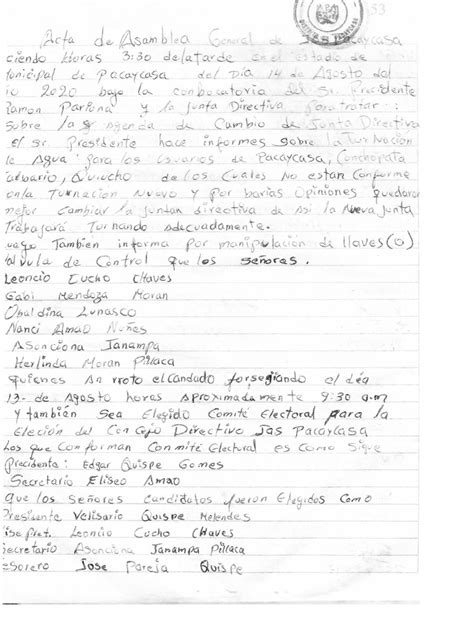 53
Acta de Asamblea General de Jas Pacaycasa
ciendo Horas 3:30 delatarde en el estado de
unicipal de Pacaycasa del Día 14 de Agosto del
io 2020 bajo la conbocatoria del Sr. Presidente
Ramon Pariona y la Junta Directiva para tratar:
Sobre la agenda de Cambio de Junta Directiva
El sr. Presidente hace informes sobre la Turnación
le Agua para los Usuarios de Pacaycasa, Conchopata
arbario, Quiucho de los Cuales No estan Conforme
onla Turnacion Nuevo y Por barias Opiniones quedaron
mejor Cambiar la Juntan directiva de Asi la Nueva Junta
Trabajará Turnando Adecuadamente.
uego Tambien informa por manipulación de llaves (o)
alvula de Control que los señores.
Leoncio Cucho Chaves
Gabi Mendoza Moran
Obaldina Lunasco
Nanci Amao Nuñes
Asonciona Janampa
Herlinda Moran Pillaca
Quienes An rroto el candado forsegiando el día
13- de Agosto horas Aproximadamente 9:30 a.m
y también Sea Elegido Comité Electoral para la
Eleción del Concejo Directivo Jas Pacaycasa
Los que Conforman Conmité Electural es Como Sigue
Precidenta: Edgar Quispe Gomes
Secretario Eliseo Amao
Que los Señores candidatos fueron Elegidos Como
Presidente Velisario Quispe Melendes
Leoncio Cucho Chaves
ecretario Asonciona Janampa Pillaca
esorero Jose Pareja Quispe